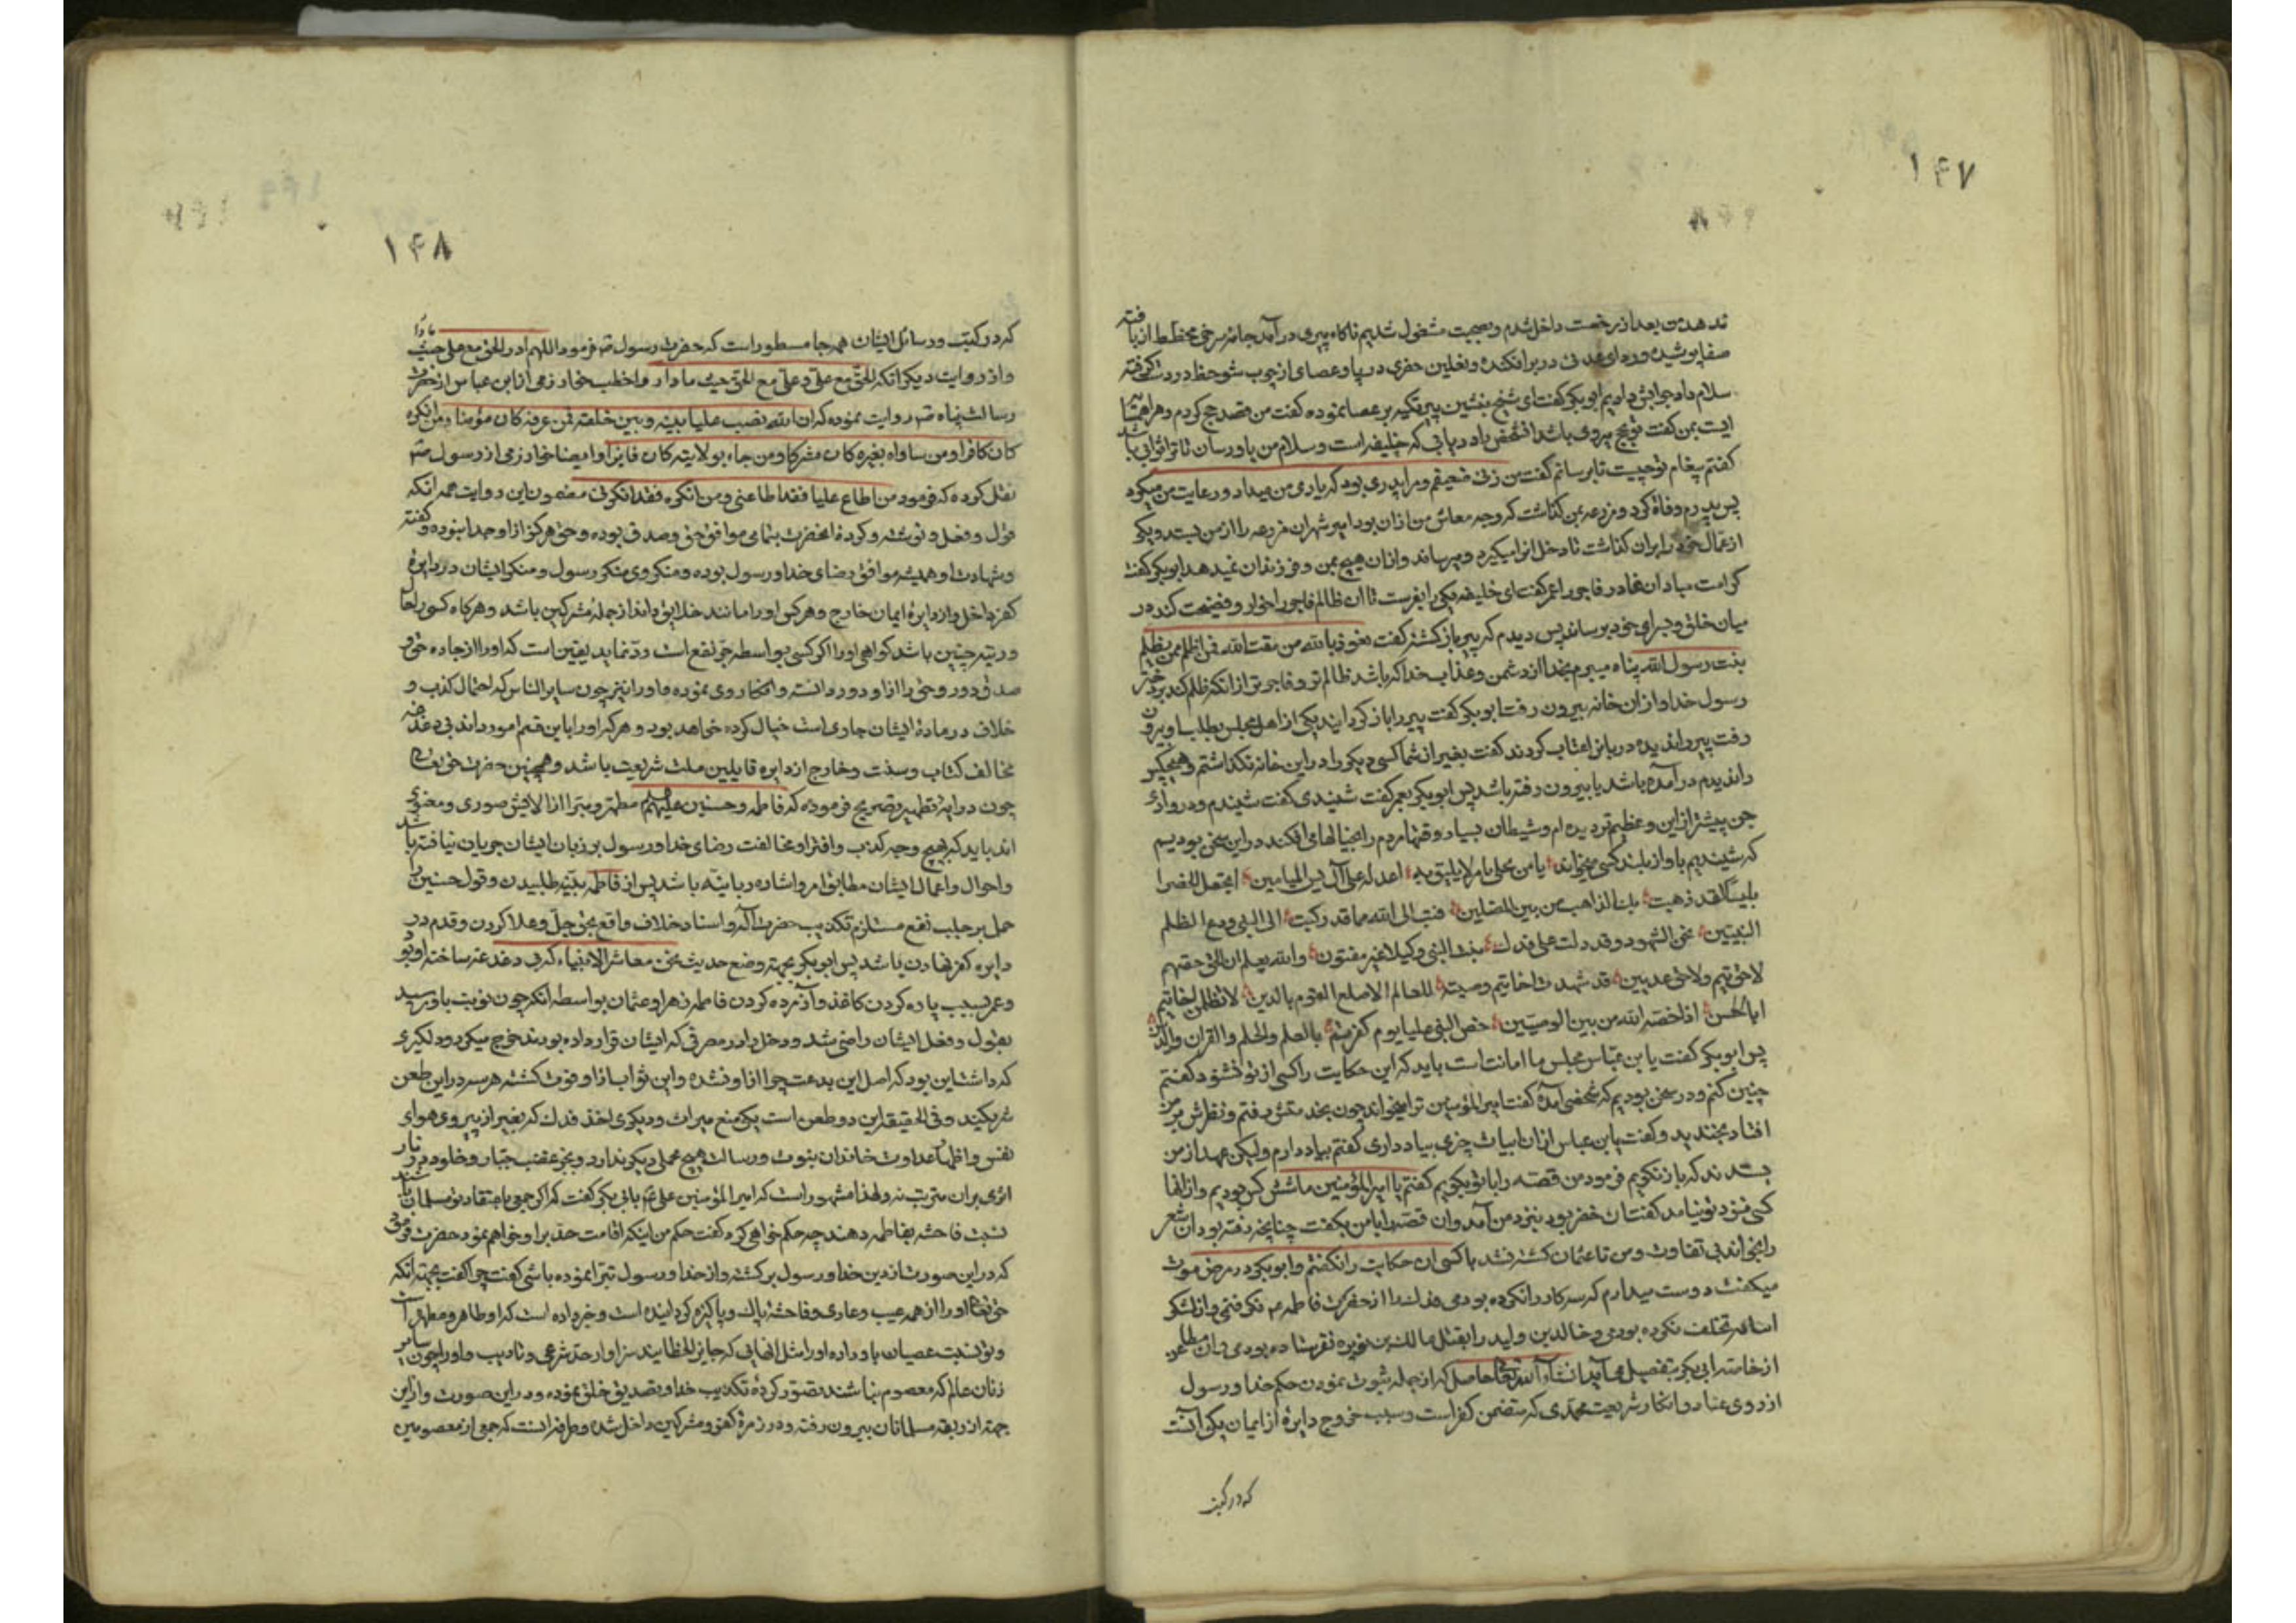 ۱۴۷
ندهد من بعد از رخصت داخل شدم و بصحبت مشغول شدیم ناکاه پیری درآمد جامه سرخی مخطط از بافته
صفا پوشیده و ردای عدنی در بر افکنده و نعلین حضری در پا و عصای از چوب شوحط در دست گرفته
سلام داد جوابش دادیم ابوبکر کفت ای شیخ بنشین پیر تکیه بر عصا نموده کفت من قصد حج کردم و مرا همسایه
ایست بمن کفت تو بحج میروی باشد انشخص یاد دیهانی که خلیفه است و سلام من باو رسان تا ترا ثوابی باشد
کفتم پیغام تو چیست تا برسانم گفت من زنی ضعیفم و مرا پدری بود که یاری من میداد و رعایت من میکرد
پس پدرم وفاة کرد و مزرعه بمن کذاشت که وجه معاش من ازان بود امیر شهران مزرعه را از من بستد و یکی
از عمال خود را بران کذاشت تا دخل انرا میکیرد و میرساند و ازان هیچ بمن و فرزندان نمیدهد ابوبکر کفت
کرامت مباد ان غادر فاجر را عمر کفت ای خلیفه یکی را بفرست تا ان ظالم فاجر را خوار و فضیحت کند در
میان خلق و بسزای خود برساند پس دیدم که پیر باز کشته کفت نعوذ بالله من مقت الله فمن اظلم ممن یظلم
بنت رسول الله پناه میبرم بخدا از دشمن و عذاب خدا که باشد ظالم تر و فاجر تر از انکه ظلم کند بر دختر
رسول خدا و ازان خانه بیرون رفت ابوبکر کفت پیر را باز کردانید یکی از اهل مجلس بطلب او بیرون
رفت پیر را ندیده دربانرا عتاب کردند کفت بغیر از شما کسی دیکر را در این خانه نکذاشتم و هیچکس
را ندیدم در آمده باشد یا بیرون رفته باشد پس ابوبکر بعمر کفت شنیدی کفت شنیدم و در وادی
جن پیشتر از این و عظیم تر دیده ام و شیطان بسیار وقتها مردم را بخیالها می افکند در این سخن بودیم
که شنیدیم باواز بلند کسی میخواند یا من تحلی بامر لا یلیق به اعدل علی آل یس المیامین اتجعل الخضرا
بلیسا لقد ذهبت بك الذاهب من بین المضلین فتب الی الله مما قد رکبت الی النبی ودع الظلم
النبیین نحن الشهود وقد دلت علی فدك بنت النبی وکیلا غیر مفتون والله یعلم ان الحق حقهم
لا حق تیم ولا حق عدیین قد شهدت اخاتیم وصیته للعالم الاصلع القوم بالدین لا تظلمن اخاتیم
ابا الحسن اذ اخصه الله من بین الوصیین خص النبی علیا یوم کفرتم بالعلم والحلم والقران والدین
پس ابوبکر کفت یا بن عباس مجلس ما امانت است باید که این حکایت را کسی از تو نشنود کفتم
چنین کنم و در سخن بودیم که شخصی آمده کفت امیر المؤمنین ترا میخواند چون بخدمتش رفتم و نظرش بر من
افتاد بخندید و کفت یا بن عباس ازان ابیات چیزی بیاد داری کفتم بیاد دارم و لیکن عهد از من
بستدند که باز نکویم فرمود من قصه را با تو بکویم کفتم یا امیر المؤمنین ما شش کس بودیم و از انها
کسی نزد تو نیامد کفت ان خضر بود بنزد من آمد و ان قصه را با من بکفت چنانچه رفته بود ان شعر
را بخواند بی تفاوت و من تا عثمان کشته نشد با کسی ان حکایت را نکفتم و ابوبکر در مرض موت
میکفت دوست میدارم که سه کار را نکرده بودمی فدك را از حضرت فاطمه ع نکرفتمی و از لشکر
اسامه تخلف نکرده بودمی و خالد بن ولید را بقتل مالك بن نویره نفرستاده بودمی و ان مطاعن
از خاصه ابی بکر بتفصیل می آید انشاء الله تعالی حاصل که از جمله ثبوت نمودن حکم خدا و رسول
از روی عناد و انکار شریعت محمدی که متضمن کفر است و سبب خروج دایرۀ از ایمان یکی آنست
که در کتب
۱۴۸
که در کتب و رسائل ایشان همه جا مسطور است که حضرت رسول ص فرمود اللهم ادر الحق مع علی حیث ما دار
و از روایت دیکر انکه الحق مع علی و علی مع الحق حیث ما دار و اخطب خوارزمی از ابن عباس از حضرت
رسالت پناه ص روایت نموده که ان الله نصب علیا بینه وبین خلقه فمن عرفه کان مؤمنا ومن انکره
کان کافرا ومن ساواه بغیره کان مشرکا ومن جاء بولایته کان فایزا و ایضا خوارزمی از رسول ص
نقل کرده که فرمود من اطاع علیا فقد اطاعنی ومن انکره فقد انکرنی مضمون این دو ایت همه انکه
قول و فعل و نوشته و کردۀ انحضرت بتمامی موافق حق و صدق بوده و حق هرکز از او جدا نبوده و کفته
و شهادت او همیشه موافق رضای خدا و رسول بوده و منکر وی منکر رسول و منکر ایشان در دایرۀ
کفر داخل و از دایرۀ ایمان خارج و هرکس او را مانند خلایق داند از جمله مشرکین باشد و هرکاه کسی را حال
و رتبه چنین باشد کواهی او را اکر کسی بواسطه جر نفع است رد نماید یقین است که او را از جاده حق و
صدق دور و حق را از او دور دانسته و انکار وی نموده و او را نیز چون سایر الناس که احتمال کذب و
خلاف در مادۀ ایشان جاری است خیال کرده خواهد بود و هرکه او را باین قسم امور داند بی دغدغه
مخالف کتاب و سنت و خارج از دایره قایلین ملت شریعت باشد و همچنین حضرت حق تعالی
چون در ایۀ تطهیر تصریح فرموده که فاطمه و حسنین علیهم السلام مطهر و مبرا از الایش صوری و معنوی
اند باید که بهیچ وجه کذب و افترا و مخالفت رضای خدا و رسول بر زبان ایشان جریان نیافته باشد
و احوال و اعمال ایشان مطابق امر و اشاره ربانیه باشد پس از فاطمه بینه طلبیدن و قول حسنین را
حمل بر جلب نفع مستلزم تکذیب حضرت اله و اسناد خلاف واقع بحق جل و علا کردن و قدم در
دایره کفر نهادن باشد پس ابوبکر بجهته وضع حدیث نحن معاشر الانبیاء که بی دغدغه ساخته او بود
و عمر بسبب پاره کردن کاغذ و آزرده کردن فاطمه زهرا و عثمان بواسطه انکه چون نوبت باو رسید
بقول و فعل ایشان راضی شد و دخل را در مصرفی که ایشان قرار داده بودند خرج میکرد و دلکیری
که داشت این بود که اصل این بدعت چرا از او نشده و این ثواب از او فوت کشته هر سه در این طعن
شریکند و فی الحقیقه این دو طعن است یکی منع میراث و دیکری اخذ فدك که بغیر از پیروی هوای
نفس و اظهار عداوت خاندان نبوت و رسالت هیچ محملی دیکر ندارد و بجز غضب جبار و خلود در نار
اثری بران مترتب نه و لهذا مشهور است که امیر المؤمنین علی ع بابی بکر کفت که اکر جمعی باعتقاد تو مسلمان باشند
نسبت فاحشه بفاطمه دهند چه حکم خواهی کرد کفت حکم من اینکه اقامت حد بر او خواهم نمود حضرت فرمود
که در این صورت از دین خدا و رسول برکشته و از خدا و رسول تبرا نموده باشی کفت چرا کفت بجهته انکه
حق تعالی او را از همه عیب و عاری و فاحشۀ پاك و پاکیزه کردانیده است و خبر داده است که او طاهر و مطهر است
و تو نسبت عصیان باو داده او را مثل انهایی که جایز الخطایند سزاوار حد شرعی و تادیب و او را چون سایر
زنان عالم که معصوم نباشند تصور کردۀ تکذیب خدا و تصدیق خلق نموده و در این صورت و از این
جهته از ربقه مسلمانان بیرون رفته و در زمرۀ کفر و مشرکین داخل شده و طرفه انست که جمعی از معصومین